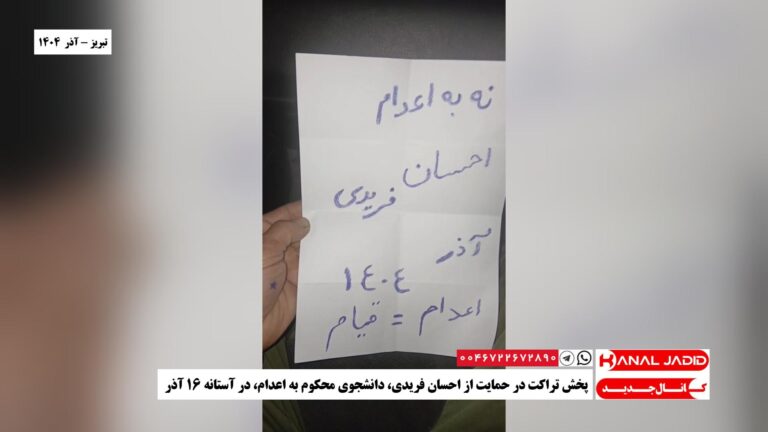 تبریز – آذر ۱۴۰۴
نه به اعدام
احسان فریدی
آذر ۱۴۰۴
اعدام = قیام
۰۰۴۶۷۲۲۶۷۲۸۹۰
KANAL JADID
کانال جدید
پخش تراکت در حمایت از احسان فریدی، دانشجوی محکوم به اعدام، در آستانه ۱۶ آذر